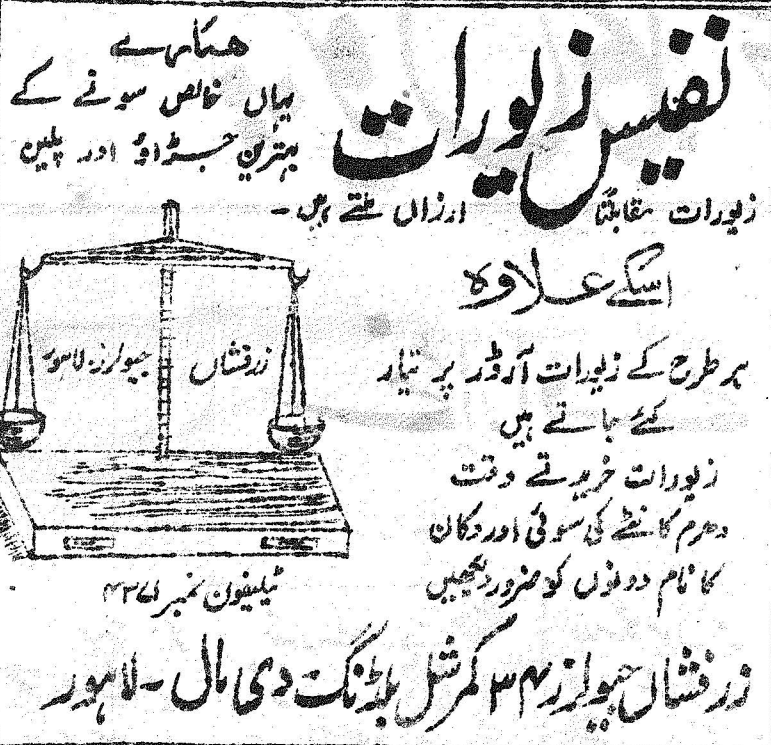 نفیس زیورات
ہمارے
یہاں خالص سونے کے
بہترین جڑاؤ اور پلین
زیورات مقابلتًا ارزاں ملتے ہیں -
اسکے علاوہ
ہر طرح کے زیورات آرڈر پر تیار
کئے جاتے ہیں
زیورات خریدتے وقت
دھرم کانٹے کی سوئی اور دکان
کا نام دونوں کو ضرور دیکھیں
زرفشاں جیولرز، لاہور
ٹیلیفون نمبر
زرفشاں جیولرز ۳۴ کمرشل بلڈنگ دی مال - لاہور